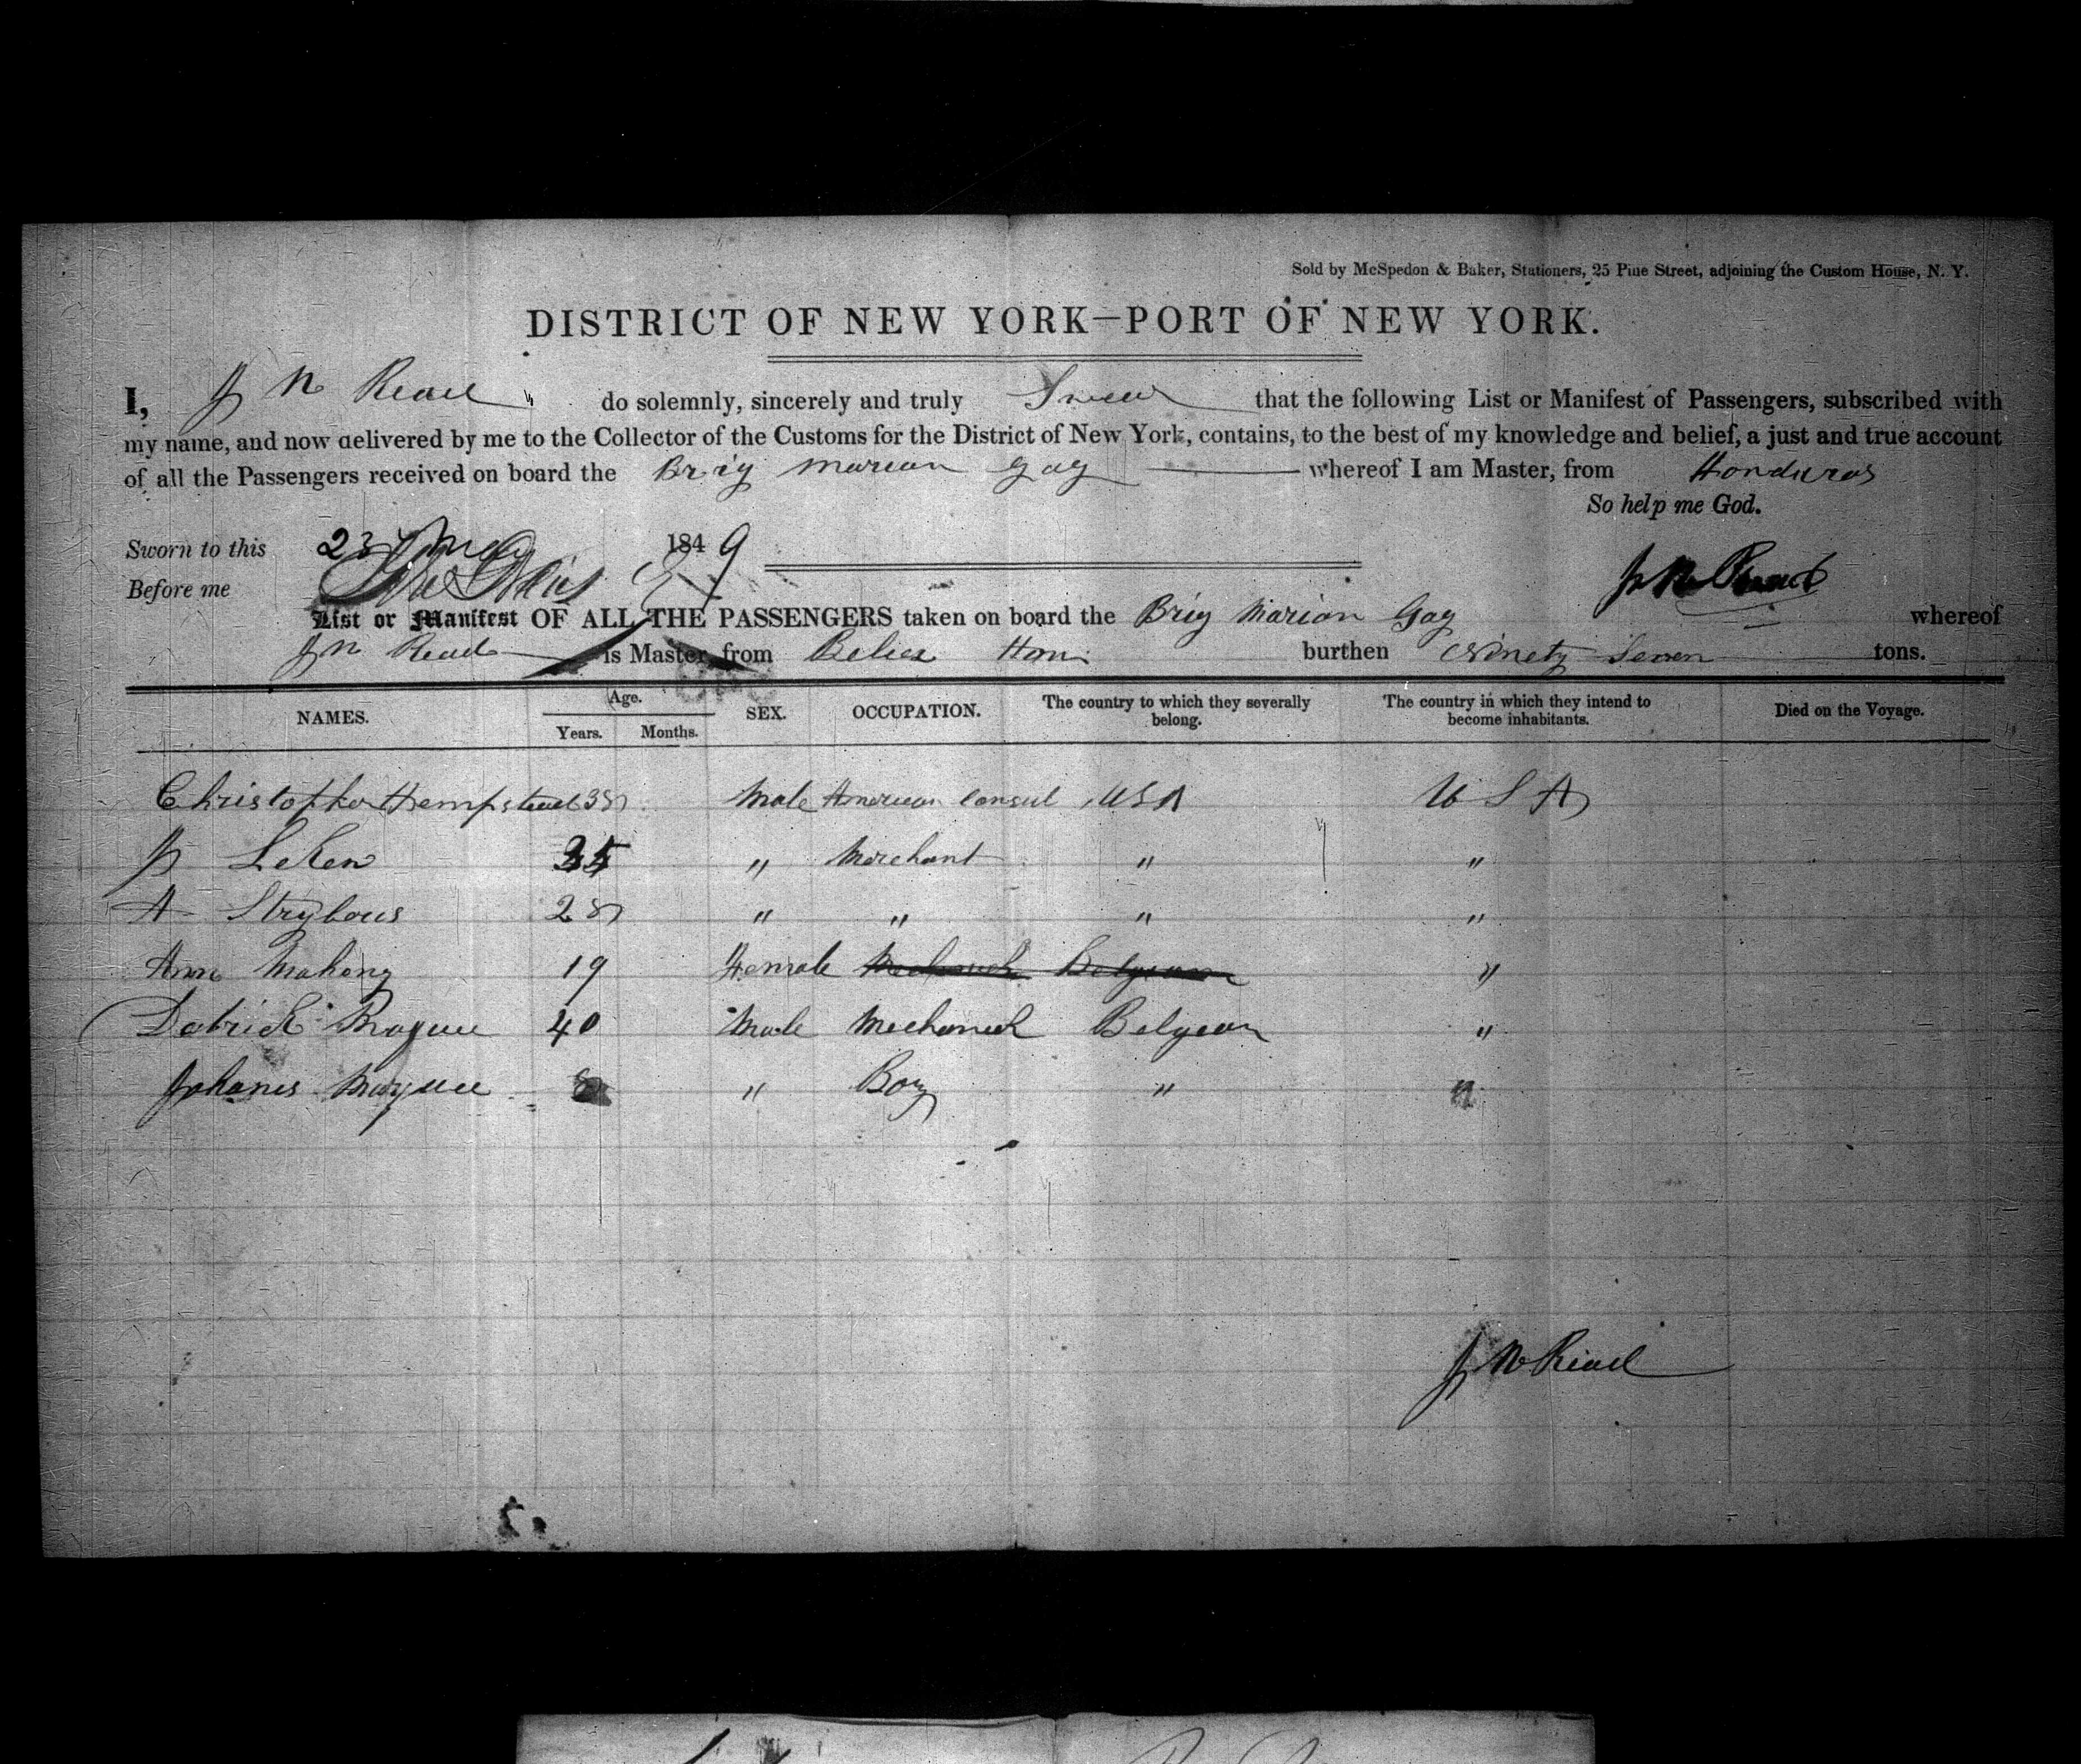 Sold by McSpedon & Baker, Stationers, 25 Pine Street, adjoining the Custom House, N. Y.
DISTRICT OF NEW YORK—PORT OF NEW YORK.
I, J N Read do solemnly, sincerely and truly Swear that the following List or Manifest of Passengers, subscribed with
my name, and now delivered by me to the Collector of the Customs for the District of New York, contains, to the best of my knowledge and belief, a just and true account
of all the Passengers received on board the Brig Marion Gag whereof I am Master, from Honduras
So help me God.
Sworn to this 23 May 1849
Before me
J N Read
List or Manifest OF ALL THE PASSENGERS taken on board the Brig Marion Gag whereof
J N Read is Master, from Belize Hon: burthen Ninety Seven tons.
NAMES. Age. Years. Months. SEX. OCCUPATION. The country to which they severally belong. The country in which they intend to become inhabitants. Died on the Voyage.
Christopher Hempstead 38 Male American Consul USA U S A
J LeKen 35 " Merchant " "
A Strybous 28 " " " "
Ann Mahony 19 Female Mechanick Belgean "
Male Mechanick Belgean "
40
Johanes 8 " Boy " "
J N Read